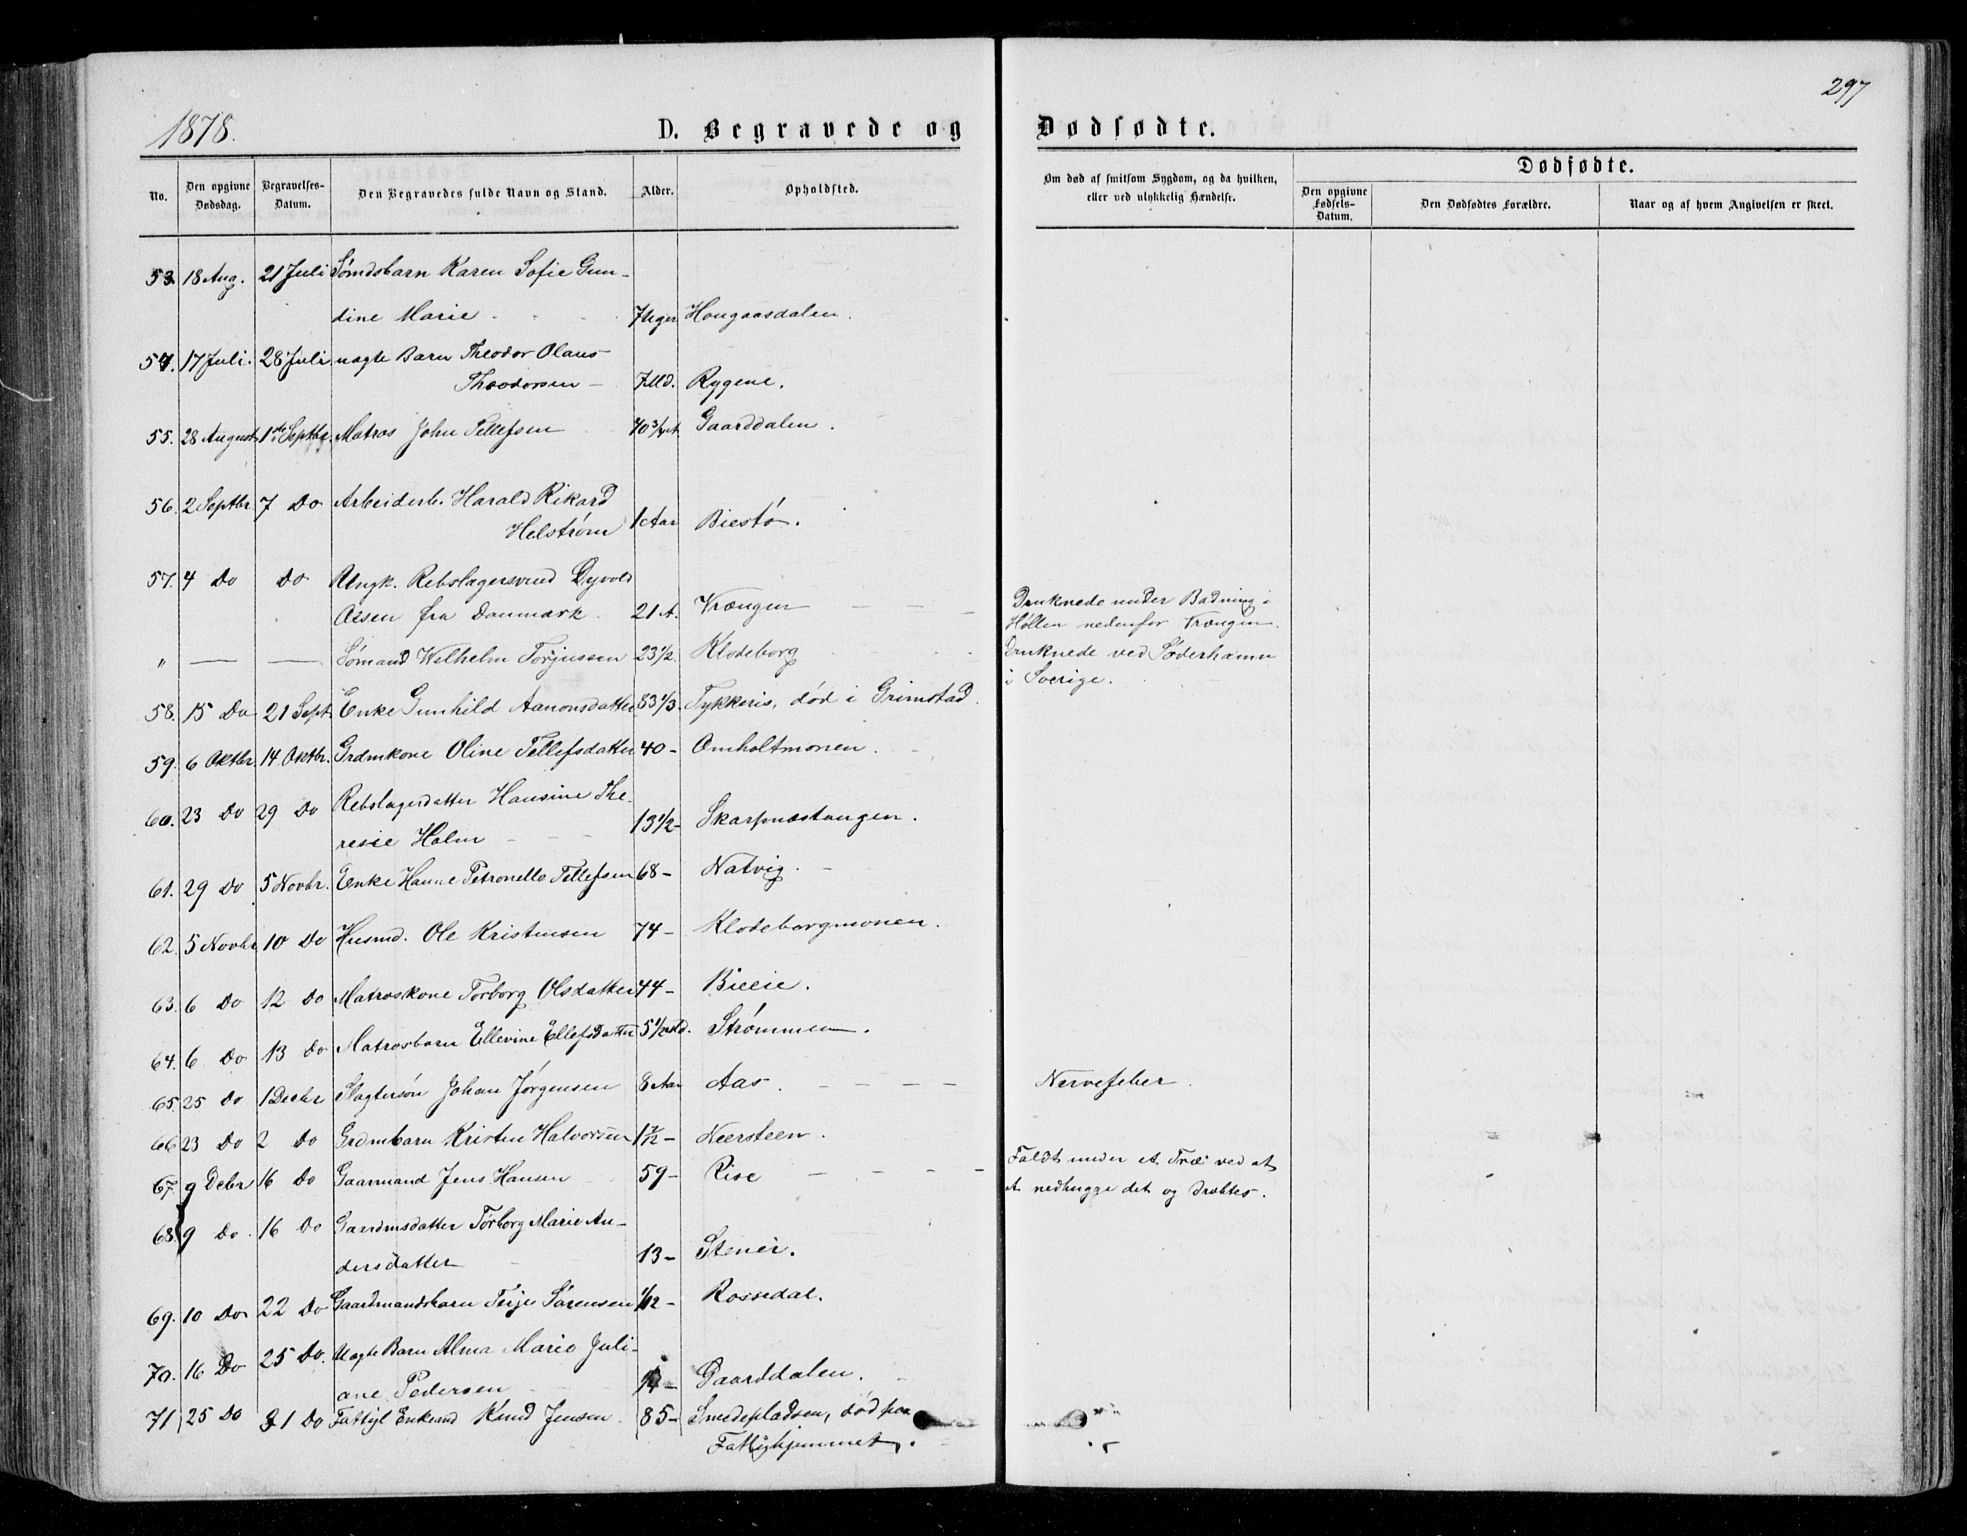 297
1878.
D. Begravede og Dødfødte.
No.
Den opgivne Dødsdag.
Begravelses-Datum.
Den Begravedes fulde Navn og Stand.
Alder.
Opholdsted.
Om død af smitsom Sygdom, og da hvilken, eller ved ulykkelig Hændelse.
Dødfødte.
Den opgivne Fødsels-Datum.
Den Dødfødtes Forældre.
Naar og af hvem Angivelsen er skeet.
53. 18 Aug. 21 Juli Sømdsbarn Karen Sofie Gun-
dine Marie 7 Uger Hougaasdalen.
54. 17 Juli. 28 Juli uægte Barn Theodor Olaus
Theodorsen – 7 Md. Rygene.
55. 28 August 1ste Septbr. Matros John Tellefsen 40 3/4 A. Gaarddalen.
56. 2 Septbr. 7 Do Arbeiderb. Harald Rikard
Helstrøm 1 Aar Biestø.
57. 4 Do Do Ungk. Rebslagersvend Dyvold
Assen fra Danmark. 21 A. Vrængen – – – Druknede under Badning i
Høllen nedenfor Vrængen.
" — — Sømand Wilhelm Torjussen 23 1/2. Klodeborg Druknede ved Søderhamn
i Sverige.
58. 15 Do 21 Sept. Enke Gunhild Aanonsdatter 83 1/3. Tykkeris, død i Grimstad.
59. 6 Oktbr. 14 Oktbr. Grdmkone Oline Tellefsdatter 40 – Omholtmonen.
60. 23 Do 29 Do Rebslagerdatter Hansine The-
resie Holm 13 1/2 – Skarpnæstangen.
61. 29 Do 5 Novbr. Enke Hanne Petronelle Tellefsen 68 – Natvig.
62. 5 Novbr 10 Do Husmd. Ole Kristensen 74 – Klodeborgmonen.
63. 6 Do 12 Do Matroskone Torborg Olsdatter 44 – Bieie.
64. 6 Do 13 Do Matrosbarn Ellevine Ellefsdatter 5 1/2 Md. Strømmen.
65. 25 Do 1 Decbr Slagtersøn Johan Jørgensen 8 Aar Aas. – – – – Nervefeber.
66 23 Do 2 Do Grdmbarn Kristen Halvorsen 1 7/12 – Neersteen.
67. 9 Debr 16 Do Gaarmand Jens Hansen 59 – Rise – – – – Faldt under et Træ ved at
at nedhugge det og dræbtes.
68. 9 Do. 16 Do Gaardmsdatter Torborg Marie An-
dersdatter 13 – Steneir.
69. 10 Do 22 Do Gaardmandsbarn Terje Sørensen 1/12 – Rossedal.
70. 16 Do 25 Do. Uægte Barn Alma Marie Juli-
ane Pedersen – Gaarddalen.
71 25 Do 31 Do Fattigl Enkemd Knud Jensen. 85 – Smedepladsen, død paa
Fattighjemmet.